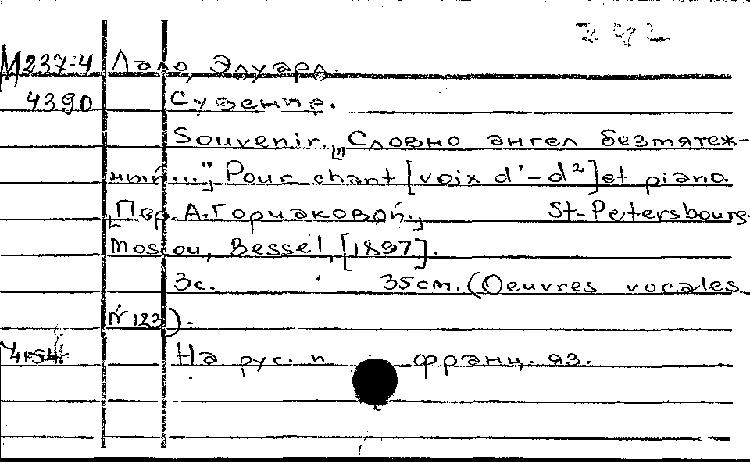 292
М237-4 Лало, Эдуард.
4390 Сувенир.
Souvenir. ["]Словно ангел безмятеж-
ный...", Pour chant [voix d'-d²] et piano.
[Пер. А. Горчаковой.] St-Petersbourg
Moscou, Bessel, [1897].
3с. 35cm. (Oeuvres vocales
N 123).
На рус. и франц. яз.